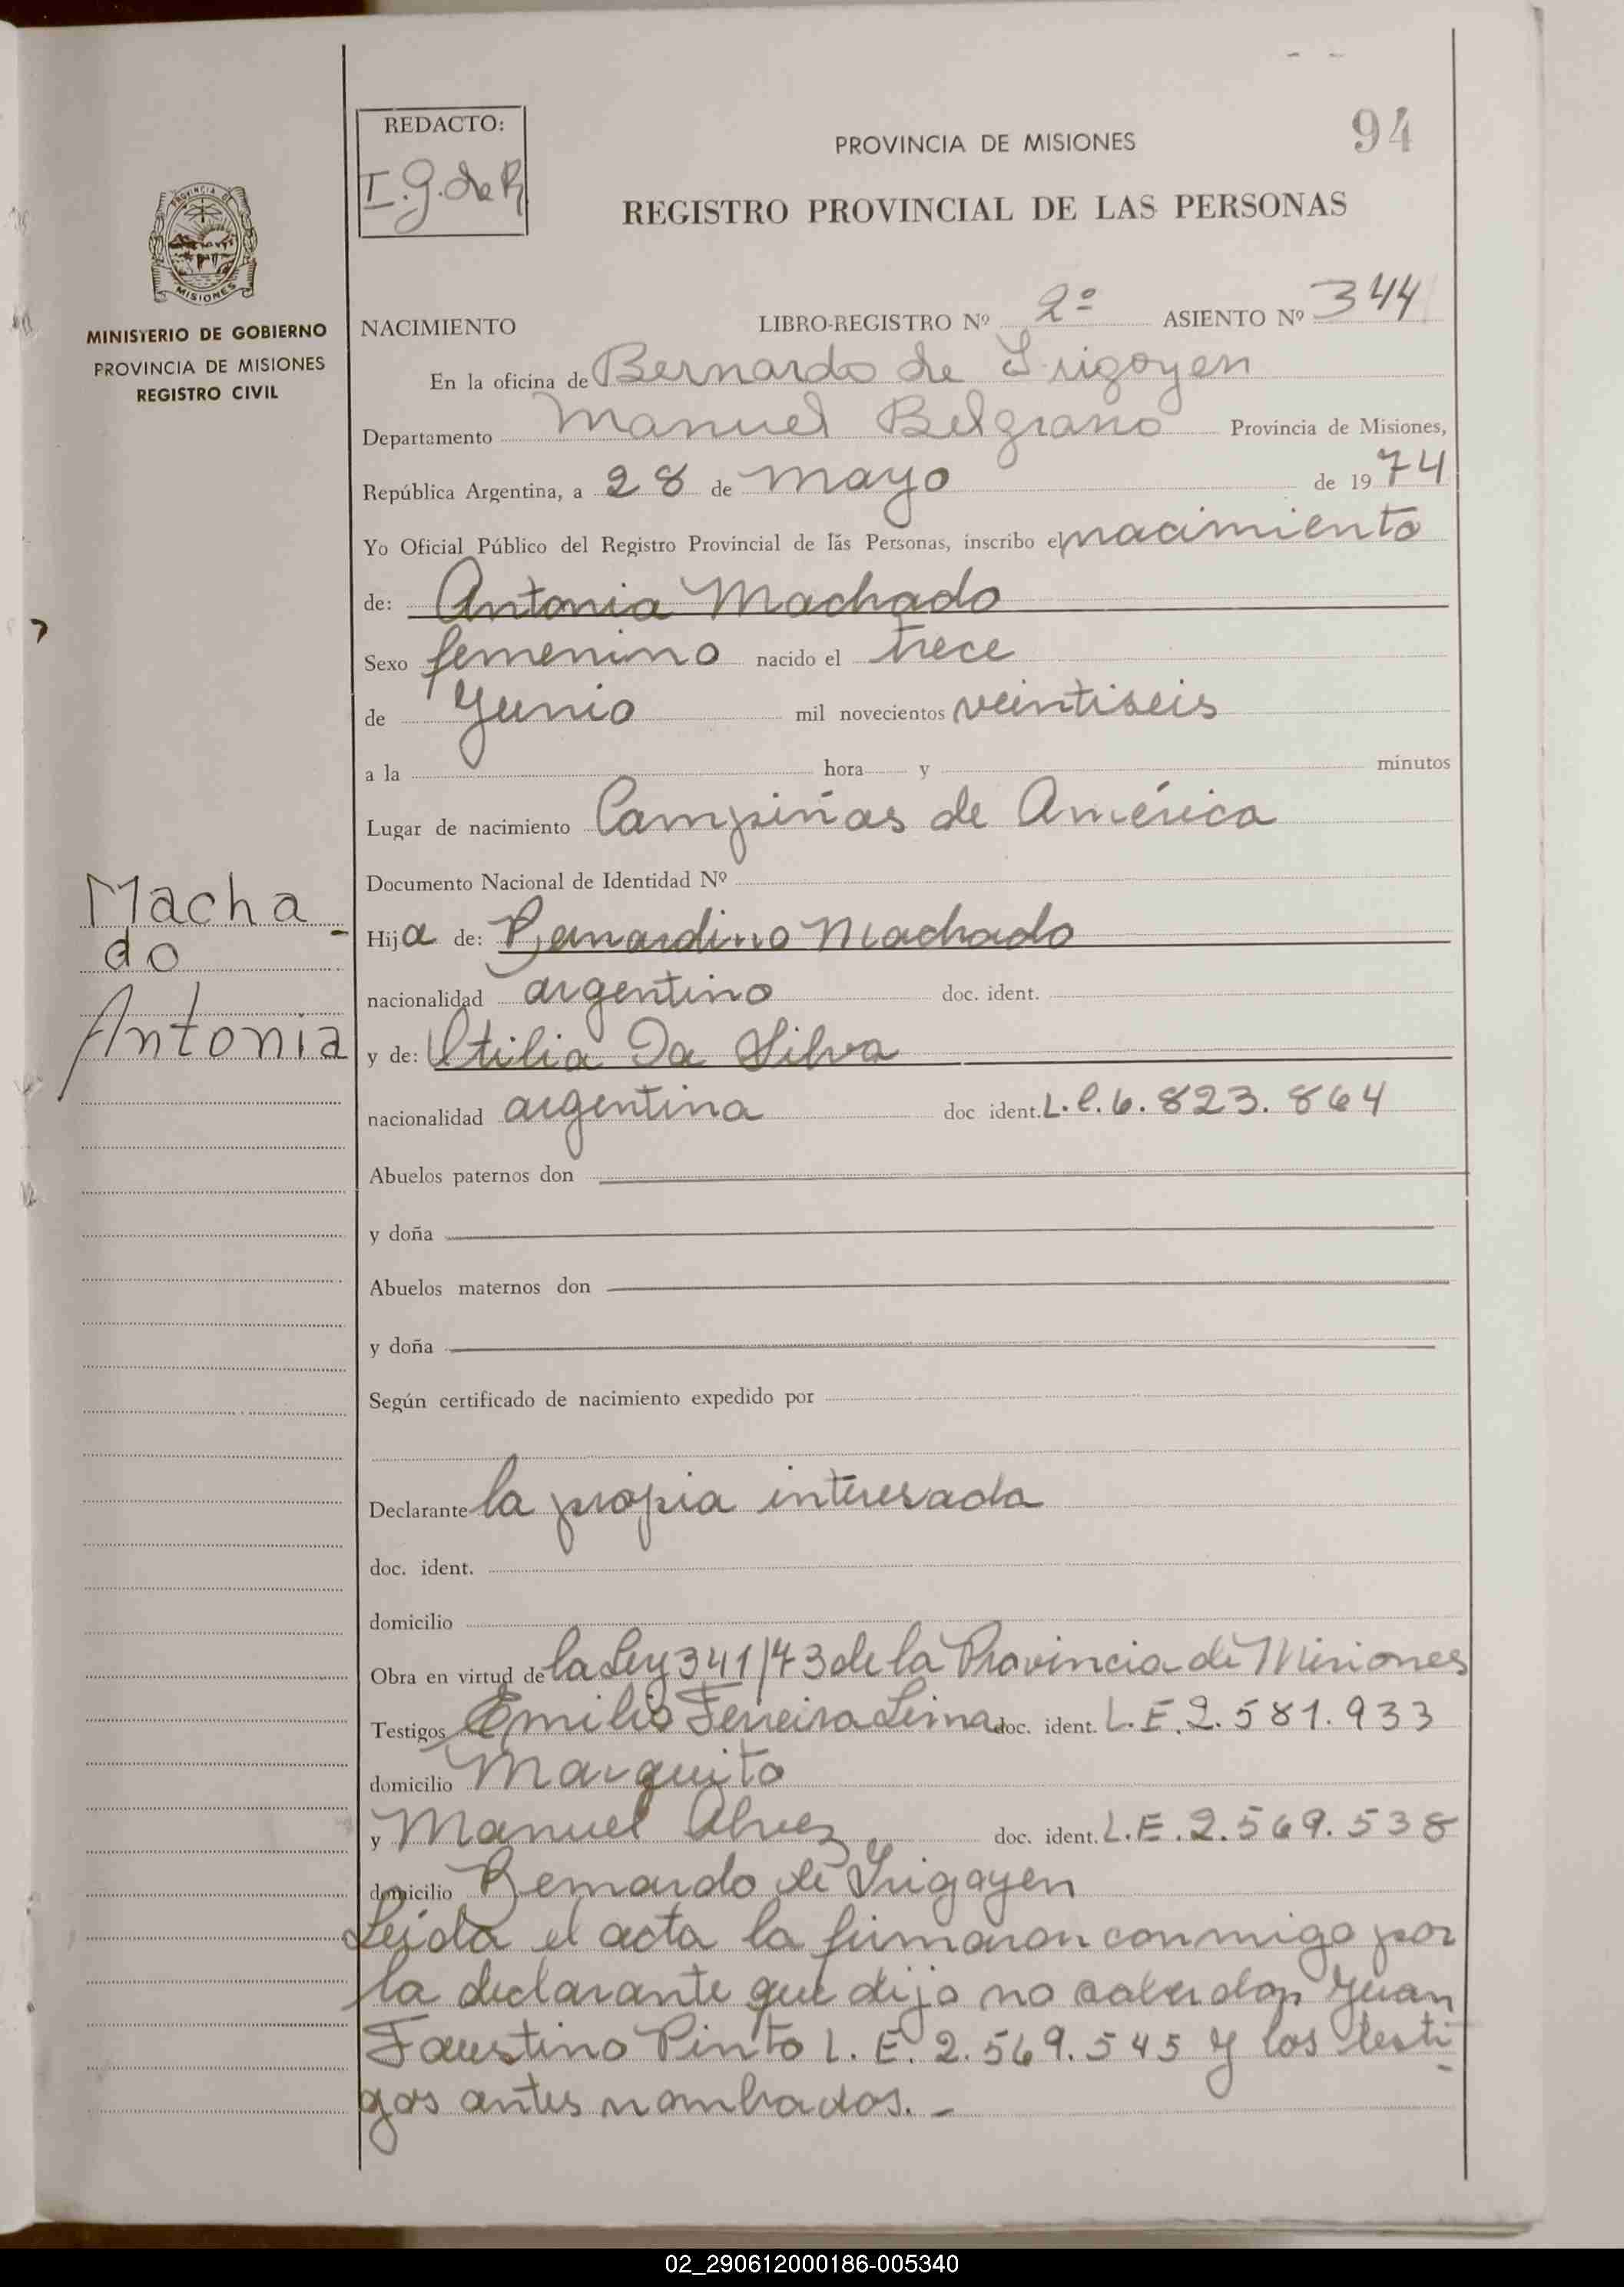 94
REDACTO:
I.G. de R
PROVINCIA DE MISIONES
REGISTRO PROVINCIAL DE LAS PERSONAS
PROVINCIA DE
MISIONES
MINISTERIO DE GOBIERNO
PROVINCIA DE MISIONES
REGISTRO CIVIL
NACIMIENTO LIBRO-REGISTRO Nº 2º ASIENTO Nº 344
En la oficina de Bernardo de Irigoyen
Departamento Manuel Belgrano Provincia de Misiones,
República Argentina, a 28 de mayo de 1974
Yo Oficial Público del Registro Provincial de las Personas, inscribo el nacimiento
de: Antonia Machado
Sexo femenino nacido el trece
de Junio mil novecientos veintiseis
a la hora y minutos
Lugar de nacimiento Campiñas de América
Documento Nacional de Identidad Nº
Macha-
do
Antonia
Hija de: Bernardino Machado
nacionalidad argentino doc. ident.
y de: Otilia Da Silva
nacionalidad argentina doc ident. L.C. 6.823.864
Abuelos paternos don
y doña
Abuelos maternos don
y doña
Según certificado de nacimiento expedido por
Declarante la propia interesada
doc. ident.
domicilio
Obra en virtud de la Ley 341/73 de la Provincia de Misiones
Testigos Emilio Ferreira Lima doc. ident. L.E. 2.581.933
domicilio Marquito
y Manuel Alvez doc. ident. L.E. 2.569.538
domicilio Bernardo de Irigoyen
Leída el acta la firmaron conmigo por
la declarante que dijo no saber don Juan
Faustino Pinto L.E. 2.569.545 y los testi-
gos antes nombrados.-
02_290612000186-005340